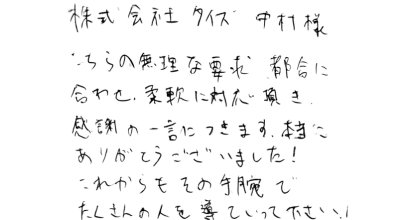 株式会社タイズ 中村様
こちらの無理な要求 都合に
合わせ、柔軟に対応頂き、
感謝の一言につきます。本当に
ありがとうございました!
これからもその手腕で
たくさんの人を導ていって下さい!